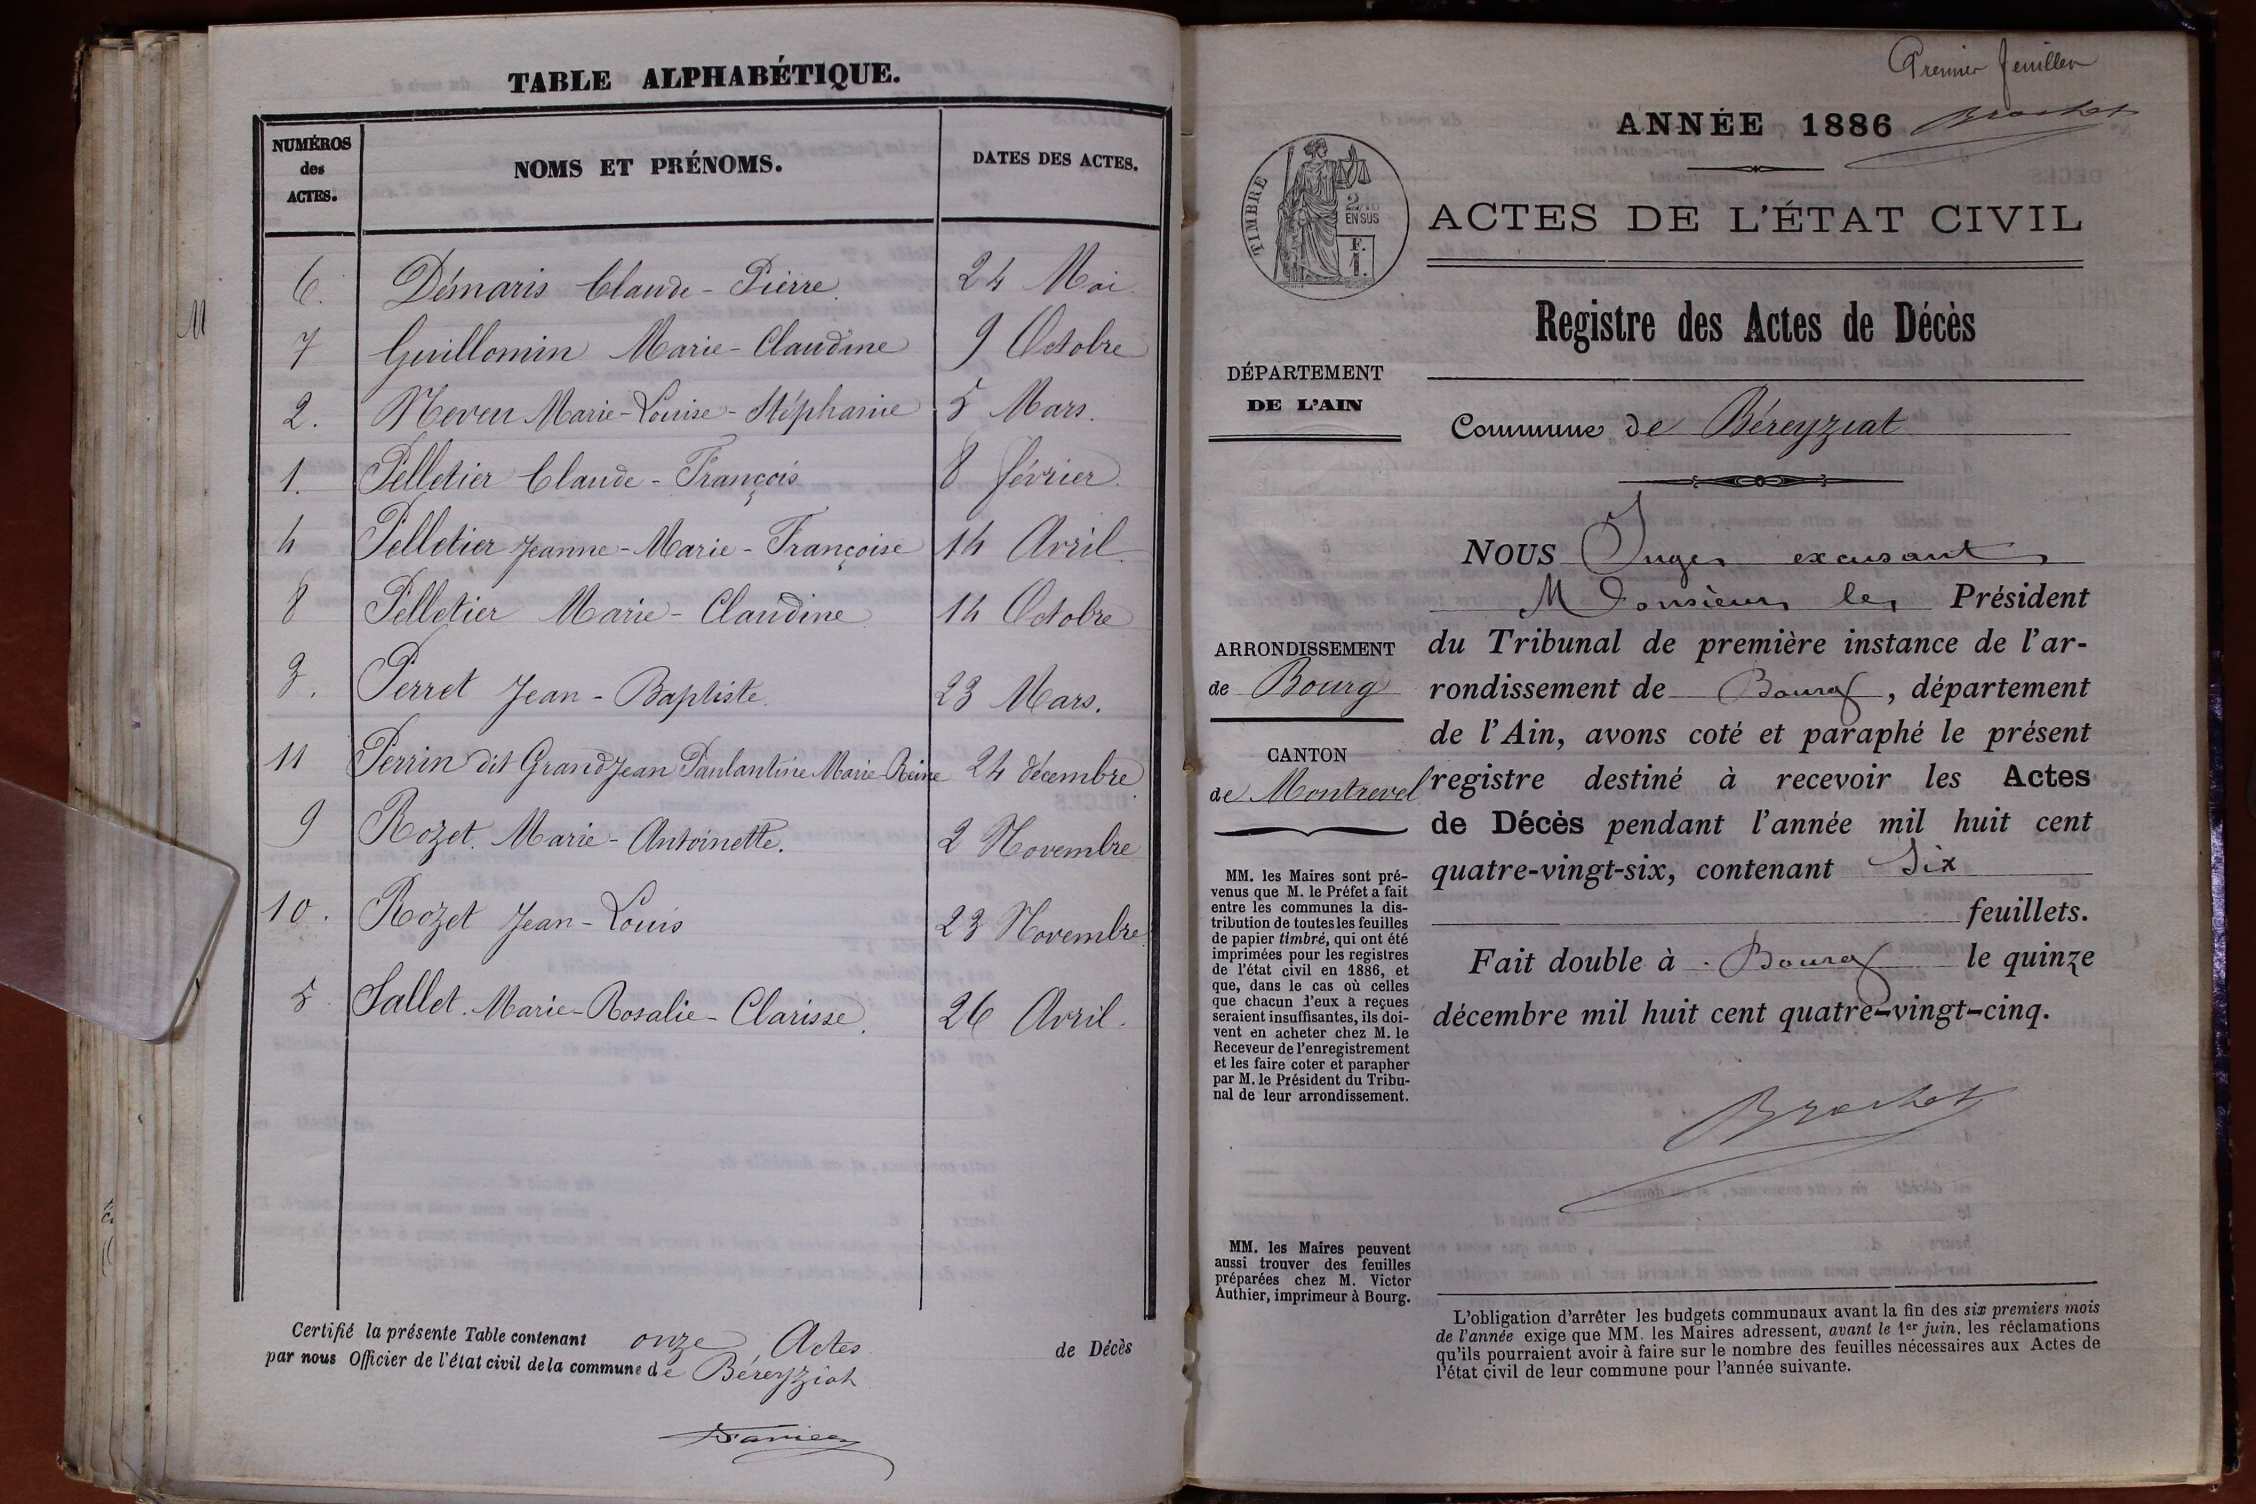 TABLE ALPHABÉTIQUE.
NUMÉROS des ACTES. NOMS ET PRÉNOMS. DATES DES ACTES.
6. Démaris Claude-Pierre. 24 Mai.
7 Guillomin Marie-Claudine 9 Octobre
2. Neveu Marie-Louise-Stéphanie 5 Mars.
1. Pelletier Claude-François 8 février.
4 Pelletier Jeanne-Marie-Françoise 14 Avril.
8 Pelletier Marie-Claudine 14 Octobre
3. Perret Jean-Baptiste. 23 Mars.
11 Perrin dit GrandJean Paulantine Marie-Reine 24 décembre
9 Rozet. Marie-Antoinette. 2 Novembre
10. Rozet Jean-Louis 23 Novembre
5 Sallet. Marie-Rosalie-Clarisse. 26 Avril.
Certifié la présente Table contenant onze Actes de Décès
par nous Officier de l'état civil de la commune de Béreyziat
Premier feuillet
ANNÉE 1886 Brochet
TIMBRE
2/10
EN SUS
F.
1.
ACTES DE L'ÉTAT CIVIL
Registre des Actes de Décès
DÉPARTEMENT
DE L'AIN
Commune de Béreyziat
NOUS Juge excusant
Monsieur le Président
ARRONDISSEMENT
de Bourg
CANTON
de Montrevel
du Tribunal de première instance de l'ar-
rondissement de Bourg, département
de l'Ain, avons coté et paraphé le présent
registre destiné à recevoir les Actes
de Décès pendant l'année mil huit cent
quatre-vingt-six, contenant Six
feuillets.
Fait double à Bourg le quinze
décembre mil huit cent quatre-vingt-cinq.
Brochet
MM. les Maires sont pré-
venus que M. le Préfet a fait
entre les communes la dis-
tribution de toutes les feuilles
de papier timbré, qui ont été
imprimées pour les registres
de l'état civil en 1886, et
que, dans le cas où celles
que chacun d'eux a reçues
seraient insuffisantes, ils doi-
vent en acheter chez M. le
Receveur de l'enregistrement
et les faire coter et parapher
par M. le Président du Tribu-
nal de leur arrondissement.
MM. les Maires peuvent
aussi trouver des feuilles
préparées chez M. Victor
Authier, imprimeur à Bourg.
L'obligation d'arrêter les budgets communaux avant la fin des six premiers mois
de l'année exige que MM. les Maires adressent, avant le 1er juin, les réclamations
qu'ils pourraient avoir à faire sur le nombre des feuilles nécessaires aux Actes de
l'état civil de leur commune pour l'année suivante.